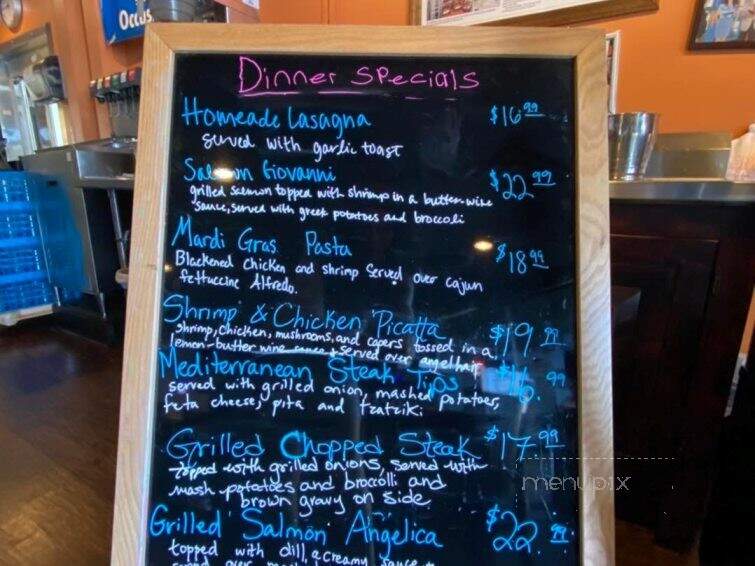 Dinner Specials
Homeade Lasagna $16.99
served with garlic toast
Salmon Giovanni $22.99
grilled salmon topped with shrimp in a butter-wine
sauce, served with greek potatoes and broccoli
Mardi Gras Pasta $18.99
Blackened Chicken and shrimp served over cajun
fettuccine Alfredo.
Shrimp & Chicken Picatta $19.99
shrimp, chicken, mushrooms, and capers tossed in a
lemon-butter wine sauce & served over angel hair
Mediterranean Steak Tips $16.99
served with grilled onion, mashed potatoes,
feta cheese, pita and tzatziki
Grilled Chopped Steak $17.99
topped with grilled onions, served with
mash potatoes and broccoli and
brown gravy on side.
Grilled Salmon Angelica $22.99
topped with dill, a creamy sauce
menupix